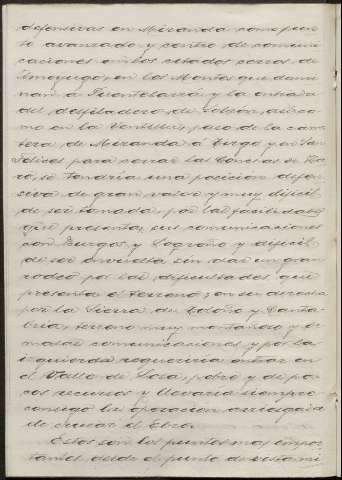 defensivas en Miranda como pun-
to avanzado y centro de comuni-
caciones en los citados cerros de
Ameyugo, en los Montes que domi-
nan a Fuentelarrá y la entrada
del desfiladero de Sobrón, asi co-
mo en la paso de la carre-
tera de Miranda á Burgo y en San
Felices para cerrar las Conchas de Ha-
ro, se tendria una posicion defen-
siva de gran valor y muy dificil
de ser tomada por las facilidades
que presenta, sus comunicaciones
con Burgos y Logroño y dificil
de ser envuelta sin dar un gran
rodeo por las dificultades que
presenta el terreno; en su derecha
por la Sierra de Toloño y Canta-
bria, terreno muy montañoso y de
malas comunicaciones y por la
izquierda requeriria entrar en
el Valle de Losa, pobre y de po-
cos recursos y llevaria siempre
consigo la operacion arriesgada
de cruzar el Ebro.
Estos son los puntos mas impor-
tantes desde el punto de vista mi-